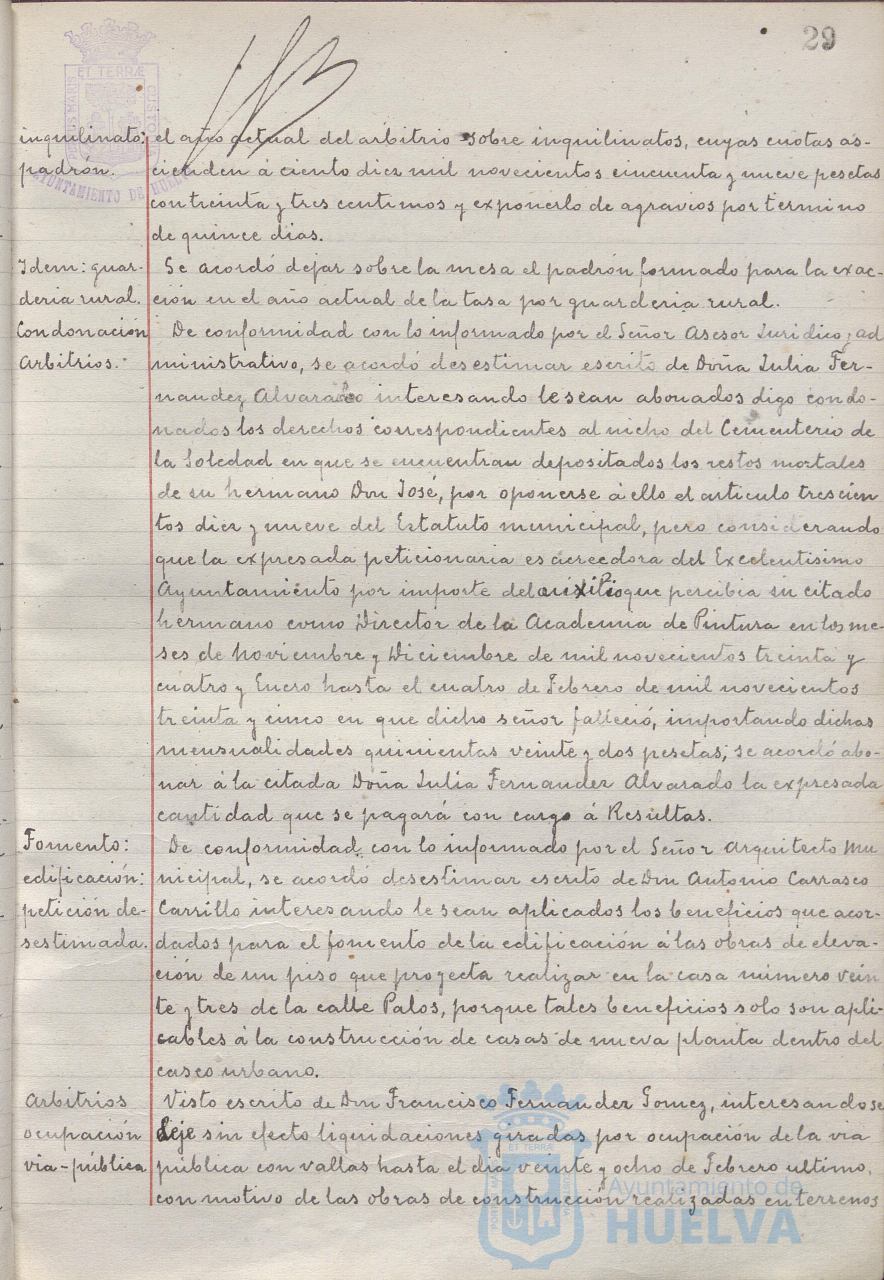 29
ET TERRÆ
AYUNTAMIENTO DE HUELVA
inquilinato: el año actual del arbitrio sobre inquilinatos, cuyas cuotas as-
padrón. cienden á ciento diez mil novecientos cincuenta y nueve pesetas
con treinta y tres centimos y exponerlo de agravios por termino
de quince dias.
Idem: guar- Se acordó dejar sobre la mesa el padrón formado para la exac-
deria rural. ción en el año actual de la tasa por guarderia rural.
Condonación De conformidad con lo informado por el Señor Asesor Juridico, ad
Arbitrios. ministrativo, se acordó desestimar escrito de Doña Julia Fer-
nandez Alvarado interesando le sean abonados digo condo-
nados los derechos correspondientes al nicho del Cementerio de
la Soledad en que se encuentran depositados los restos mortales
de su hermano Don José, por oponerse á ello el articulo trescien
tos diez y nueve del Estatuto municipal, pero considerando
que la expresada peticionaria es acreedora del Excelentisimo
Ayuntamiento por importe del auxilio que percibia su citado
hermano como Director de la Academia de Pintura en los me-
ses de Noviembre y Diciembre de mil novecientos treinta y
cuatro y Enero hasta el cuatro de Febrero de mil novecientos
treinta y cinco en que dicho señor falleció, importando dichas
mensualidades quinientas veinte y dos pesetas; se acordó abo-
nar á la citada Doña Julia Fernandez Alvarado la expresada
cantidad que se pagará con cargo á Resultas.
Fomento: De conformidad con lo informado por el Señor Arquitecto Mu
edificación: nicipal, se acordó desestimar escrito de Don Antonio Carrasco
petición de- Carrillo interesando le sean aplicados los beneficios que acor-
sestimada. dados para el fomento de la edificación á las obras de eleva-
ción de un piso que proyecta realizar en la casa número vein
te y tres de la calle Palos, porque tales beneficios solo son apli-
cables á la construcción de casas de nueva planta dentro del
casco urbano.
Arbitrios Visto escrito de Don Francisco Fernandez Gomez, interesando se
ocupación deje sin efecto liquidaciones giradas por ocupación de la via
via-pública pública con vallas hasta el dia veinte y ocho de Febrero ultimo,
con motivo de las obras de construcción realizadas en terrenos
Ayuntamiento de
HUELVA